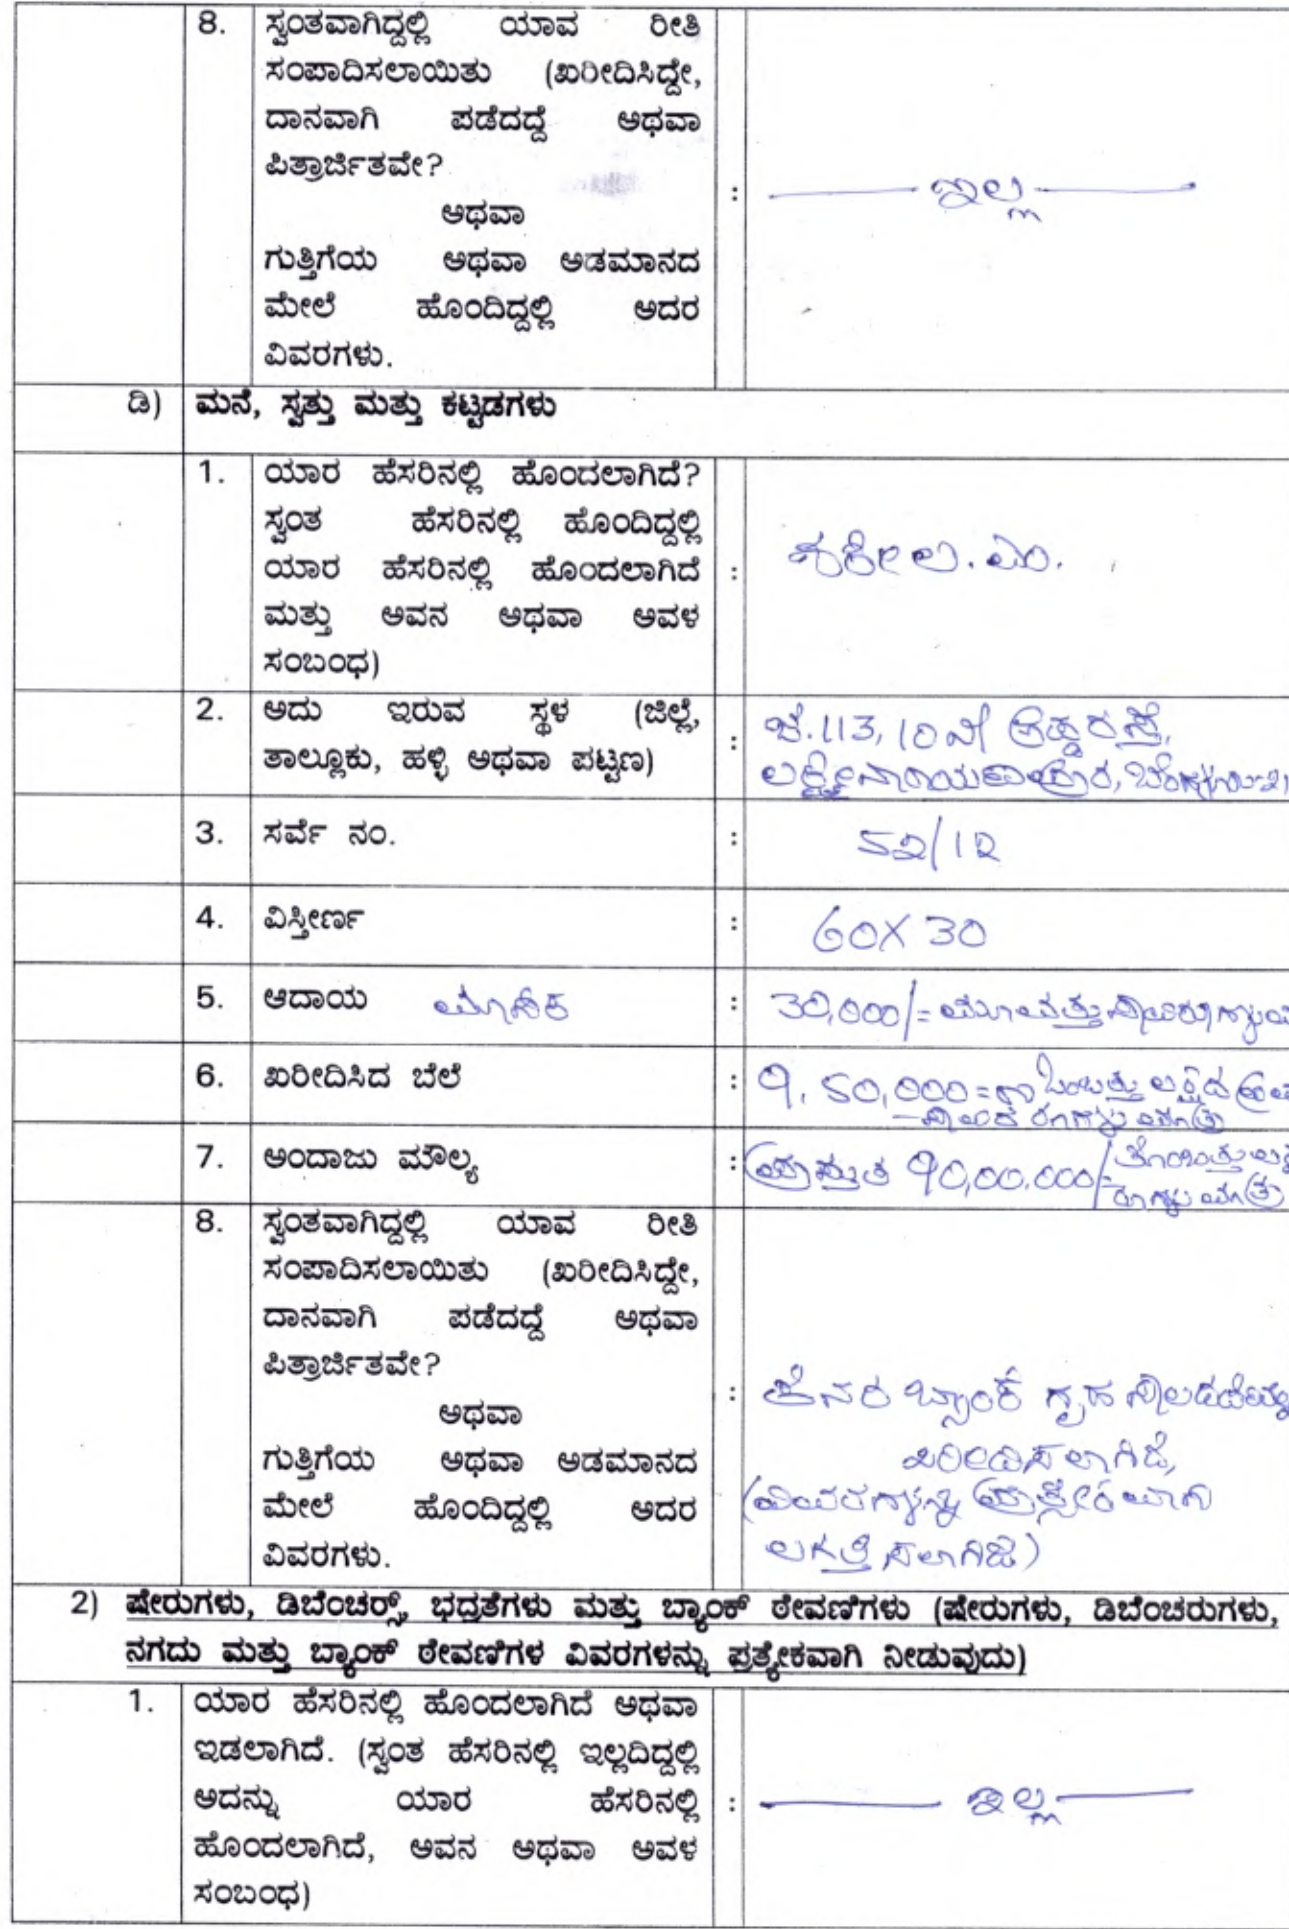 8. ಸ್ವಂತವಾಗಿದ್ದಲ್ಲಿ ಯಾವ ರೀತಿ
ಸಂಪಾದಿಸಲಾಯಿತು (ಖರೀದಿಸಿದ್ದೇ,
ದಾನವಾಗಿ ಪಡೆದದ್ದೆ ಅಥವಾ
ಪಿತ್ರಾರ್ಜಿತವೇ?
ಅಥವಾ
ಗುತ್ತಿಗೆಯ ಅಥವಾ ಅಡಮಾನದ
ಮೇಲೆ ಹೊಂದಿದ್ದಲ್ಲಿ ಅದರ
ವಿವರಗಳು.
: ಇಲ್ಲ
ಡಿ) ಮನೆ, ಸ್ವತ್ತು ಮತ್ತು ಕಟ್ಟಡಗಳು
1. ಯಾರ ಹೆಸರಿನಲ್ಲಿ ಹೊಂದಲಾಗಿದೆ?
ಸ್ವಂತ ಹೆಸರಿನಲ್ಲಿ ಹೊಂದಿದ್ದಲ್ಲಿ
ಯಾರ ಹೆಸರಿನಲ್ಲಿ ಹೊಂದಲಾಗಿದೆ
ಮತ್ತು ಅವನ ಅಥವಾ ಅವಳ
ಸಂಬಂಧ)
: ಎಂ.
2. ಅದು ಇರುವ ಸ್ಥಳ (ಜಿಲ್ಲೆ,
ತಾಲ್ಲೂಕು, ಹಳ್ಳಿ ಅಥವಾ ಪಟ್ಟಣ)
: 113, 10ನೇ ಅಡ್ಡರಸ್ತೆ,
ಲಕ್ಷ್ಮೀನಾರಾಯಣಪುರ,
3. ಸರ್ವೆ ನಂ. : 52/12
4. ವಿಸ್ತೀರ್ಣ : 60X 30
5. ಆದಾಯ ಮಾಸಿಕ : 30,000/= ಮೂವತ್ತು
6. ಖರೀದಿಸಿದ ಬೆಲೆ : 9,50,000= ಒಂಬತ್ತು ಲಕ್ಷದ
ಸಾವಿರ ರೂಗಳು ಮಾತ್ರ
7. ಅಂದಾಜು ಮೌಲ್ಯ : ಪ್ರಸ್ತುತ 90,00,000/= ತೊಂಬತ್ತು
ರೂಗಳು ಮಾತ್ರ
8. ಸ್ವಂತವಾಗಿದ್ದಲ್ಲಿ ಯಾವ ರೀತಿ
ಸಂಪಾದಿಸಲಾಯಿತು (ಖರೀದಿಸಿದ್ದೇ,
ದಾನವಾಗಿ ಪಡೆದದ್ದೆ ಅಥವಾ
ಪಿತ್ರಾರ್ಜಿತವೇ?
ಅಥವಾ
ಗುತ್ತಿಗೆಯ ಅಥವಾ ಅಡಮಾನದ
ಮೇಲೆ ಹೊಂದಿದ್ದಲ್ಲಿ ಅದರ
ವಿವರಗಳು.
: ಕೆನರ ಬ್ಯಾಂಕ್ ಗೃಹ
ಖರೀದಿಸಲಾಗಿದೆ,
(ವಿವರಗಳನ್ನು ಪ್ರತ್ಯೇಕವಾಗಿ
ಲಗತ್ತಿಸಲಾಗಿದೆ)
2) ಷೇರುಗಳು, ಡಿಬೆಂಚರ್ಸ್, ಭದ್ರತೆಗಳು ಮತ್ತು ಬ್ಯಾಂಕ್ ಠೇವಣಿಗಳು (ಷೇರುಗಳು, ಡಿಬೆಂಚರುಗಳು,
ನಗದು ಮತ್ತು ಬ್ಯಾಂಕ್ ಠೇವಣಿಗಳ ವಿವರಗಳನ್ನು ಪ್ರತ್ಯೇಕವಾಗಿ ನೀಡುವುದು)
1. ಯಾರ ಹೆಸರಿನಲ್ಲಿ ಹೊಂದಲಾಗಿದೆ ಅಥವಾ
ಇಡಲಾಗಿದೆ. (ಸ್ವಂತ ಹೆಸರಿನಲ್ಲಿ ಇಲ್ಲದಿದ್ದಲ್ಲಿ
ಅದನ್ನು ಯಾರ ಹೆಸರಿನಲ್ಲಿ
ಹೊಂದಲಾಗಿದೆ, ಅವನ ಅಥವಾ ಅವಳ
ಸಂಬಂಧ)
: ಇಲ್ಲ